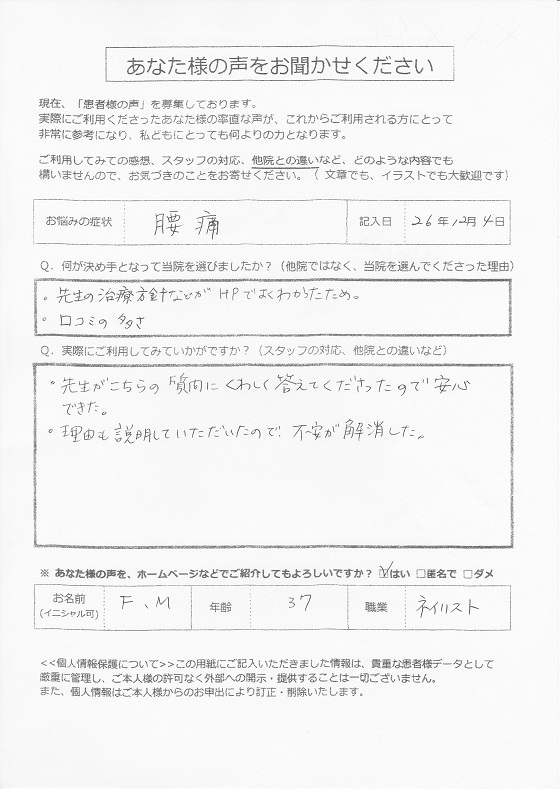 あなた様の声をお聞かせください
現在、「患者様の声」を募集しております。
実際にご利用くださったあなた様の率直な声が、これからご利用される方にとって
非常に参考になり、私どもにとっても何よりの力となります。
ご利用してみての感想、スタッフの対応、他院との違いなど、どのような内容でも
構いませんので、お気づきのことをお寄せください。（文章でも、イラストでも大歓迎です）
お悩みの症状 腰痛 記入日 26年12月4日
Q．何が決め手となって当院を選びましたか？（他院ではなく、当院を選んでくださった理由）
・先生の治療方針などがHPでよくわかったため。
・口コミの多さ
Q．実際にご利用してみていかがですか？（スタッフの対応、他院との違いなど）
・先生がこちらの質問にくわしく答えてくださったので安心
できた。
・理由も説明していただいたので不安が解消した。
※ あなた様の声を、ホームページなどでご紹介してもよろしいですか？ ☑はい □匿名で □ダメ
お名前
(イニシャル可) F、M 年齢 37 職業 ネイリスト
<<個人情報保護について>>この用紙にご記入いただきました情報は、貴重な患者様データとして
厳重に管理し、ご本人様の許可なく外部への開示・提供することは一切ございません。
また、個人情報はご本人様からのお申出により訂正・削除いたします。